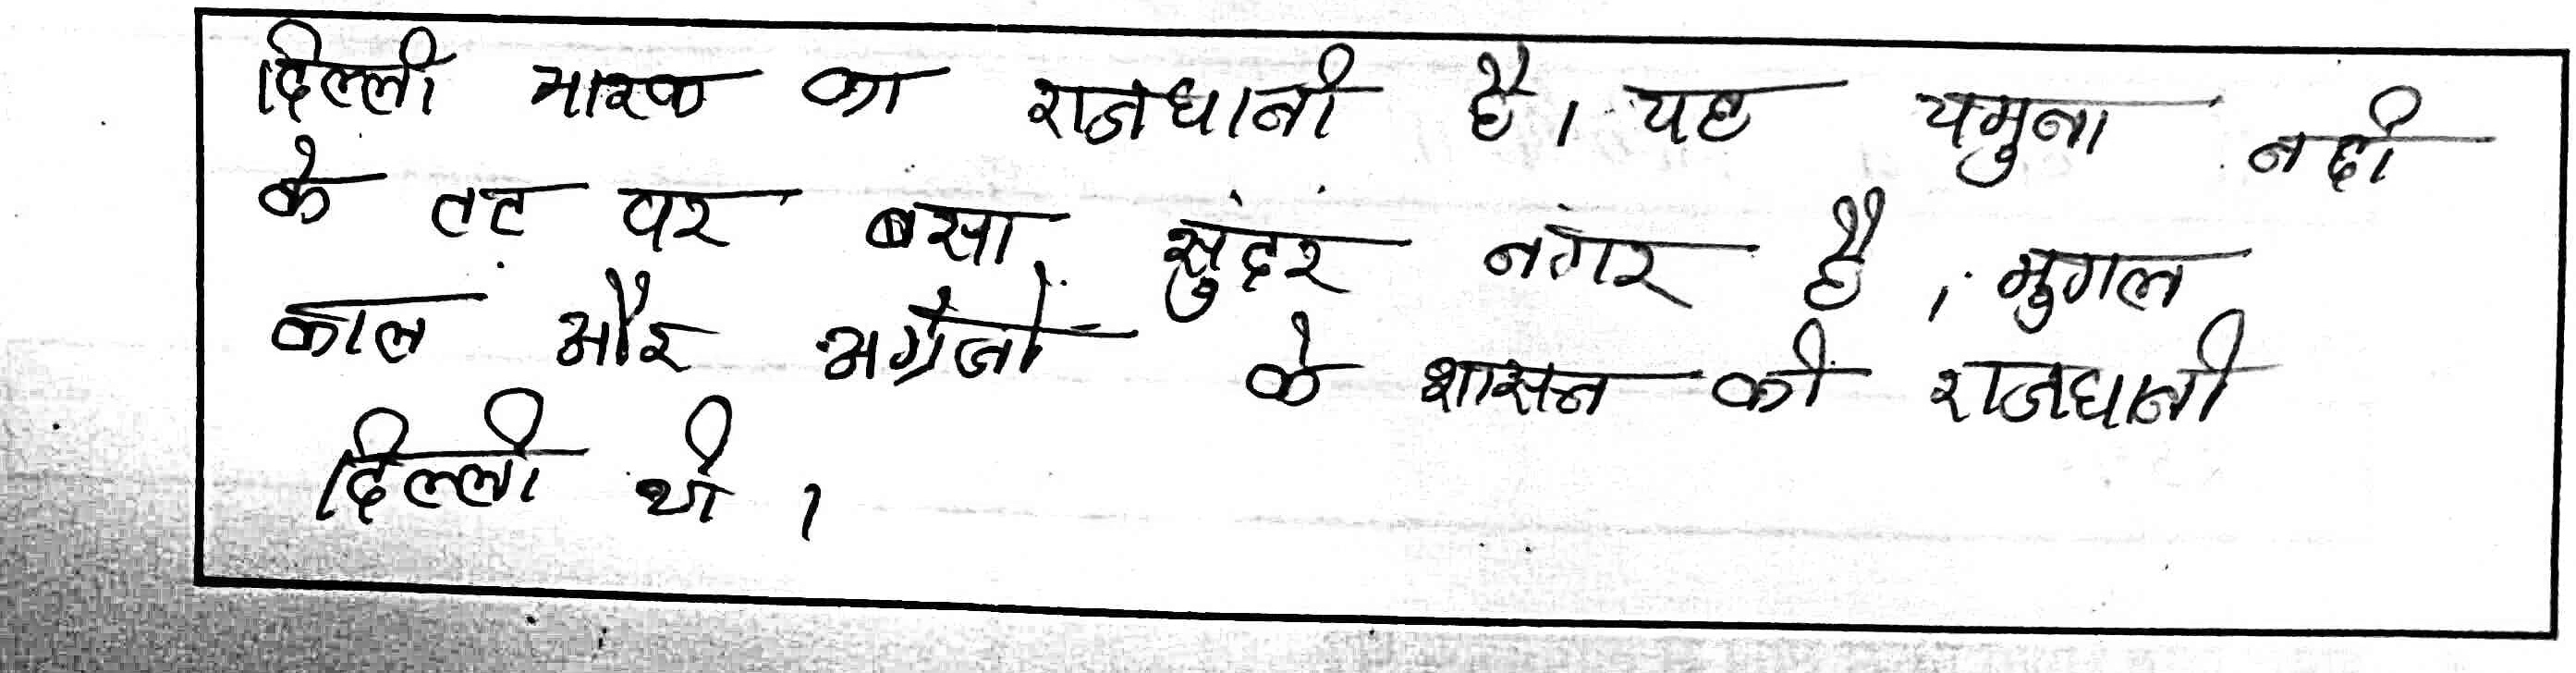 दिल्ली भारत का राजधानी है। यह यमुना नदी
के तट पर बसा सुंदर नगर है। मुगल
काल और अग्रेजों के शासन की राजधानी
दिल्ली थी ।